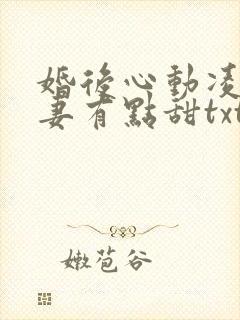 婚後心動凌
妻有點甜txt
嫩苞谷